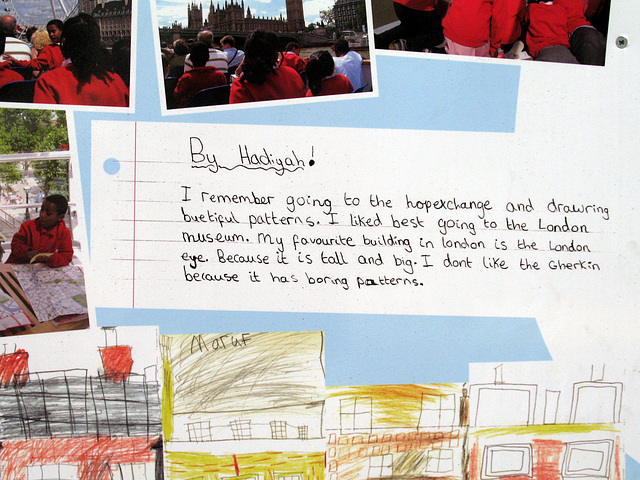 By Hadiyah!
I remember going to the hopexchange and drawring
buetiful patterns. I liked best going to the London
museum. My favourite building in london is the London
eye. Because it is tall and big. I dont like the Gherkin
because it has boring patterns.
Maruf